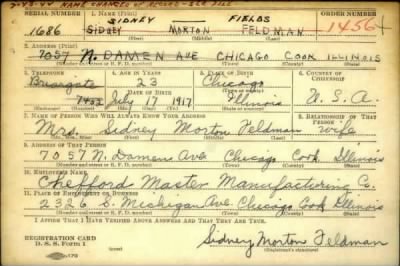 7-29-44 NAME CHANGED OF RECORD - SEE FILE
SERIAL NUMBER
1. NAME (Print)
ORDER NUMBER
SIDNEY FIELDS
1686
Sidney MORTON FELDMAN
1456
(First) (Middle) (Last)
2. ADDRESS (Print)
7057 N. DAMEN AVE CHICAGO COOK ILLINOIS
(Number and street or R. F. D. number) (Town) (County) (State)
3. TELEPHONE
4. AGE IN YEARS
5. PLACE OF BIRTH
6. COUNTRY OF CITIZENSHIP
Briargate
23
Chicago
DATE OF BIRTH
July 17 1917
Illinois
U.S.A.
7. NAME OF PERSON WHO WILL ALWAYS KNOW YOUR ADDRESS
8. RELATIONSHIP OF THAT PERSON
Mrs. Sidney Morton Feldman wife
9. ADDRESS OF THAT PERSON
7057 N. Damen Ave Chicago Cook Illinois
(Number and street or R. F. D. number) (Town) (County) (State)
10. EMPLOYER'S NAME
Chefford Master Manufacturing Co.
11. PLACE OF EMPLOYMENT OR BUSINESS
2326 S. Michigan Ave. Chicago Cook Illinois
(Number and street or R. F. D. number) (Town) (County) (State)
I AFFIRM THAT I HAVE VERIFIED ABOVE ANSWERS AND THAT THEY ARE TRUE.
REGISTRATION CARD
D. S. S. Form 1
Sidney Morton Feldman